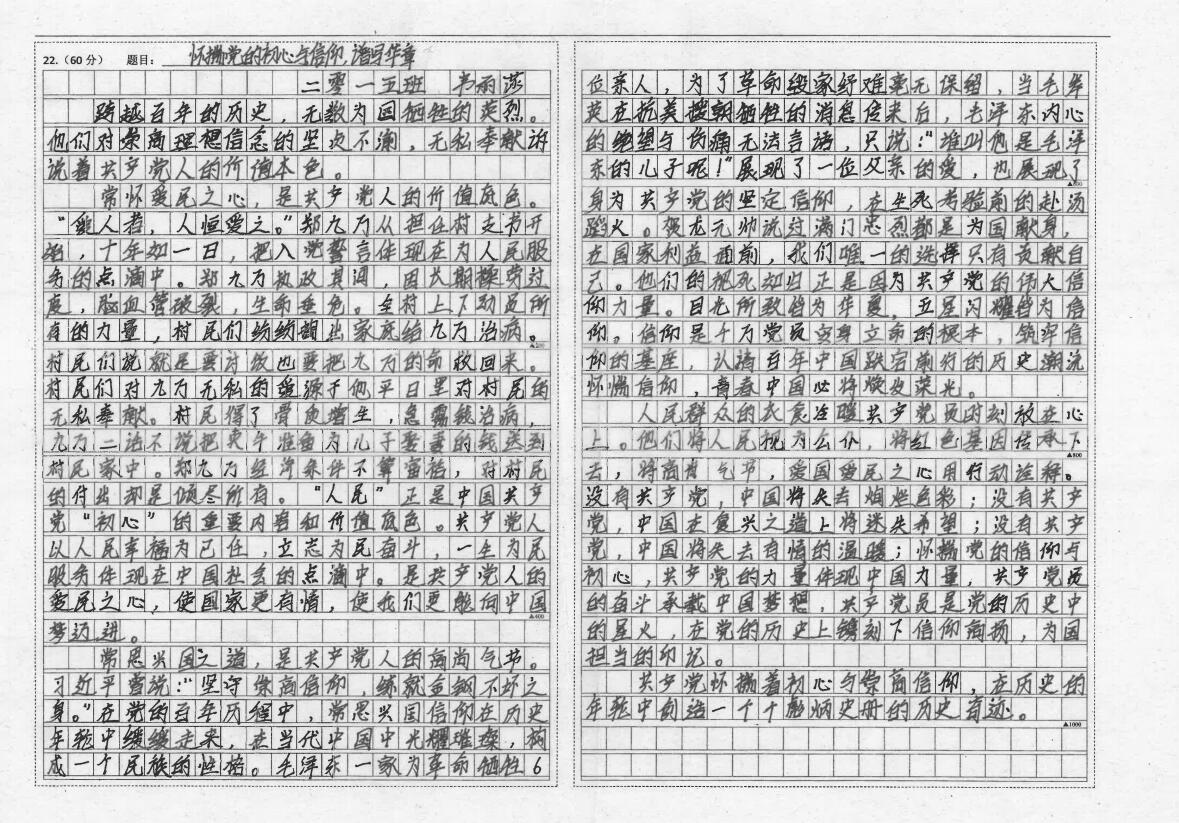 22.（60分） 题目： 怀揣党的初心与信仰，谱写华章
二零一五班 韦雨莎
跨越百年的历史，无数为国牺牲的英烈。
他们对崇高理想信念的坚决不渝，无私奉献诉
说着共产党人的价值本色。
常怀爱民之心，是共产党人的价值底色。
“爱人者，人恒爱之。”郑九万从担任村支书开
始，十年如一日，把入党誓言体现在为人民服
务的点滴中。郑九万执政其间，因长期操劳过
度，脑血管破裂，生命垂危。全村上下动员所
有的力量，村民们纷纷调出家底给九万治病。
▲200
村民们说就是要讨饭也要把九万的命收回来。
村民们对九万无私的爱源于他平日里对村民的
无私奉献。村民得了骨质增生，急需钱治病，
九万二话不说把卖牛准备为儿子娶妻的钱送到
村民家中。郑九万经济条件不算富裕，对村民
的付出却是倾尽所有。“人民”正是中国共产
党“初心”的重要内容和价值底色。共产党人
以人民幸福为已任，立志为民奋斗，一生为民
服务体现在中国社会的点滴中。是共产党人的
爱民之心，使国家更有情，使我们更能向中国
▲400
梦迈进。
常思兴国之道，是共产党人的高尚气节。
习近平曾说：“坚守崇高信仰，练就金钢不坏之
身。”在党的百年历程中，常思兴国信仰在历史
年轮中缓缓走来，在当代中国中光耀璀璨，构
成一个民族的性格。毛泽东一家为革命牺牲6
位亲人，为了革命毁家纾难毫无保留，当毛岸
英在抗美援朝牺牲的消息传来后，毛泽东内心
的绝望与伤痛无法言语，只说：“谁叫他是毛泽
东的儿子呢！”展现了一位父亲的爱，也展现了
▲600
身为共产党的坚定信仰，在生死考验前的赴汤
蹈火。贺龙元帅说过满门忠烈都是为国献身，
在国家利益面前，我们唯一的选择只有贡献自
己。他们的视死如归正是因为共产党的伟大信
仰力量。目光所致皆为华夏，五星闪耀皆为信
仰。信仰是千万党员安身立命的根本，筑牢信
仰的基座，认清百年中国跌宕前行的历史潮流
怀惴信仰，青春中国必将焕发荣光。
人民群众的衣食冷暖共产党员时刻放在心
上。他们将人民视为公仆，将红色基因传承下
▲800
去，将高尚气节，爱国爱民之心用行动诠释。
没有共产党，中国将失去绚烂色彩；没有共产
党，中国在复兴之道上将迷失希望；没有共产
党，中国将失去有情的温暖；怀揣党的信仰与
初心，共产党的力量体现中国力量，共产党员
的奋斗承载中国梦想，共产党员是党的历史中
的星火，在党的历史上镌刻下信仰高扬，为国
担当的印记。
共产党怀揣着初心与崇高信仰，在历史的
年轮中创造一个个彪炳史册的历史奇迹。
▲1000